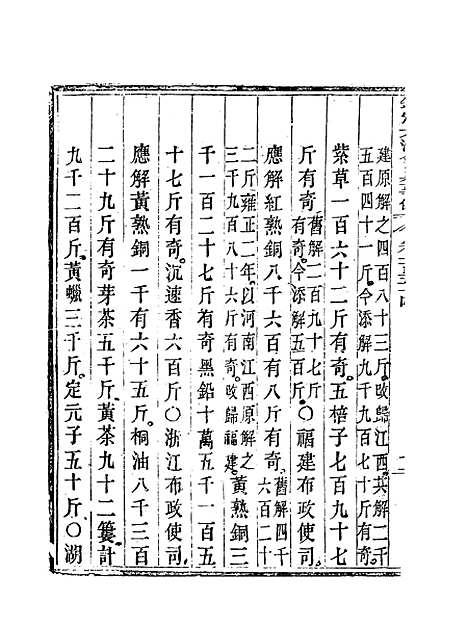 建原解之四百八十三斤攺歸江西共解二千
五百四十一斤今添解九千九百七十斤有奇
紫草一百六十二斤有奇。五棓子七百九十七
斤有奇。舊解二百九十七斤有奇。今添解五百斤○福建布政使司。
應解紅熟銅八千六百有八斤有奇。舊解四千六百二十
二斤雍正二年。以河南江西原解之三千九百八十六斤有奇。攺歸福建。黃熟銅三
千一百二十七斤有奇黑鉛十萬五千一百五
十七斤有奇。沉速香六百斤○浙江布政使司。
應解黃熟銅一千有六十五斤。桐油八千三百
二十九斤有奇芽茶五千斤黃茶九十二簍計
九千二百斤。黃蠟三千斤。定元子五十斤○湖